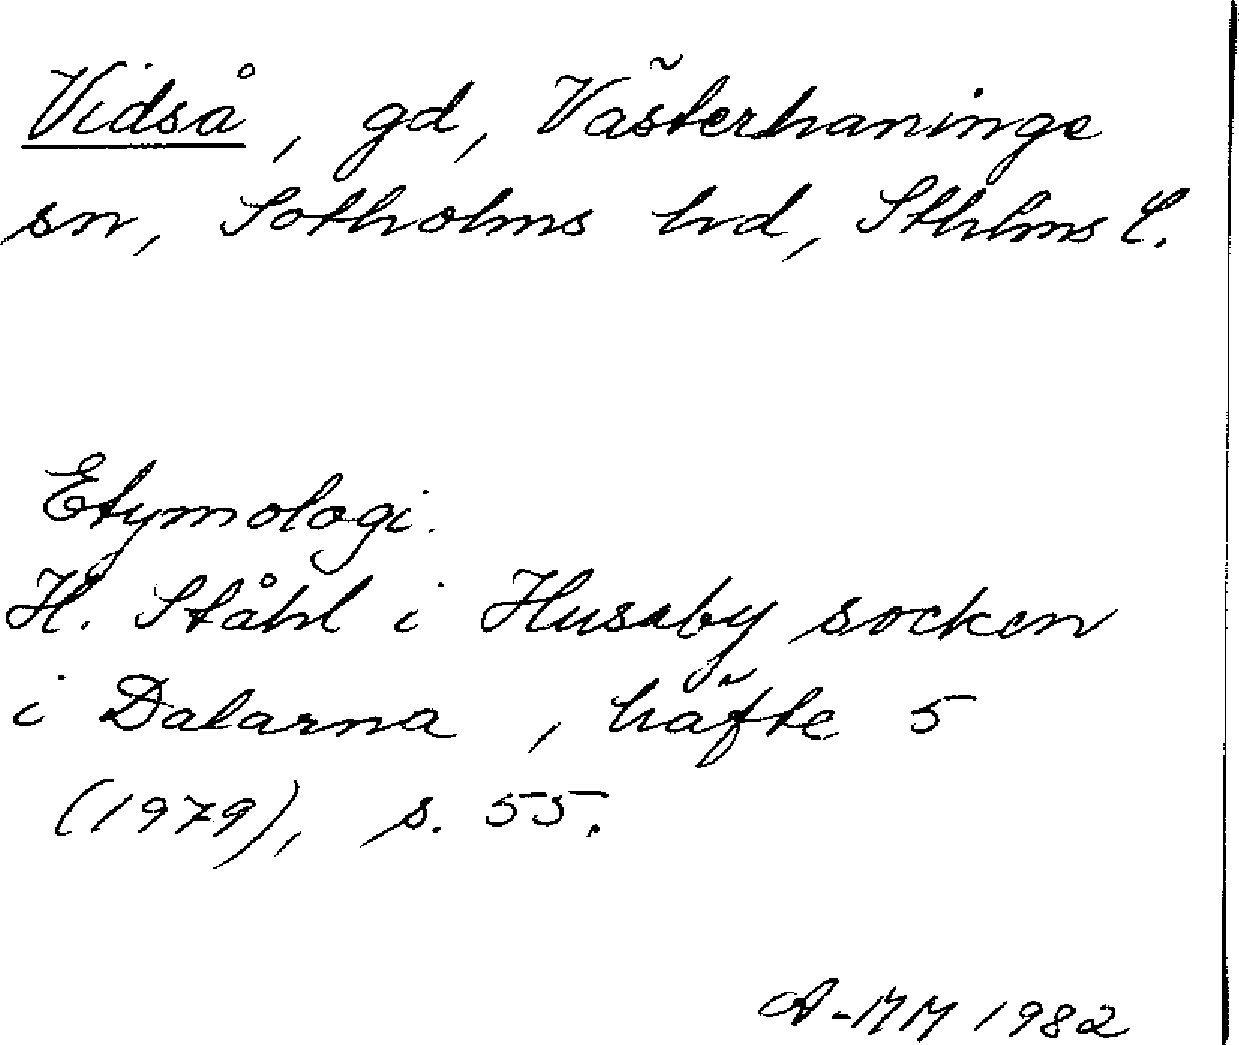 Vidså, gd, Västerhaninge
sn, Sotholms hd, Sthlms l.
Etymologi.
H. Ståhl i Husby socken
i Dalarna, häfte 5
(1979), s. 55.
A-MM 1982